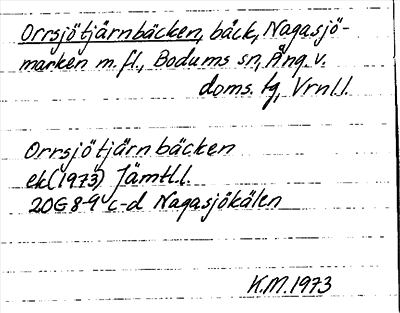 Orrsjötjärnbäcken, bäck, Nagasjö-
marken m.fl., Bodums sn, Ång. v.
doms. tg, Vrnl.l.
Orrsjötjärnbäcken
ek(1973) Jämtl.l.
20G8-9 c-d Nagasjökälen
K.M.1973